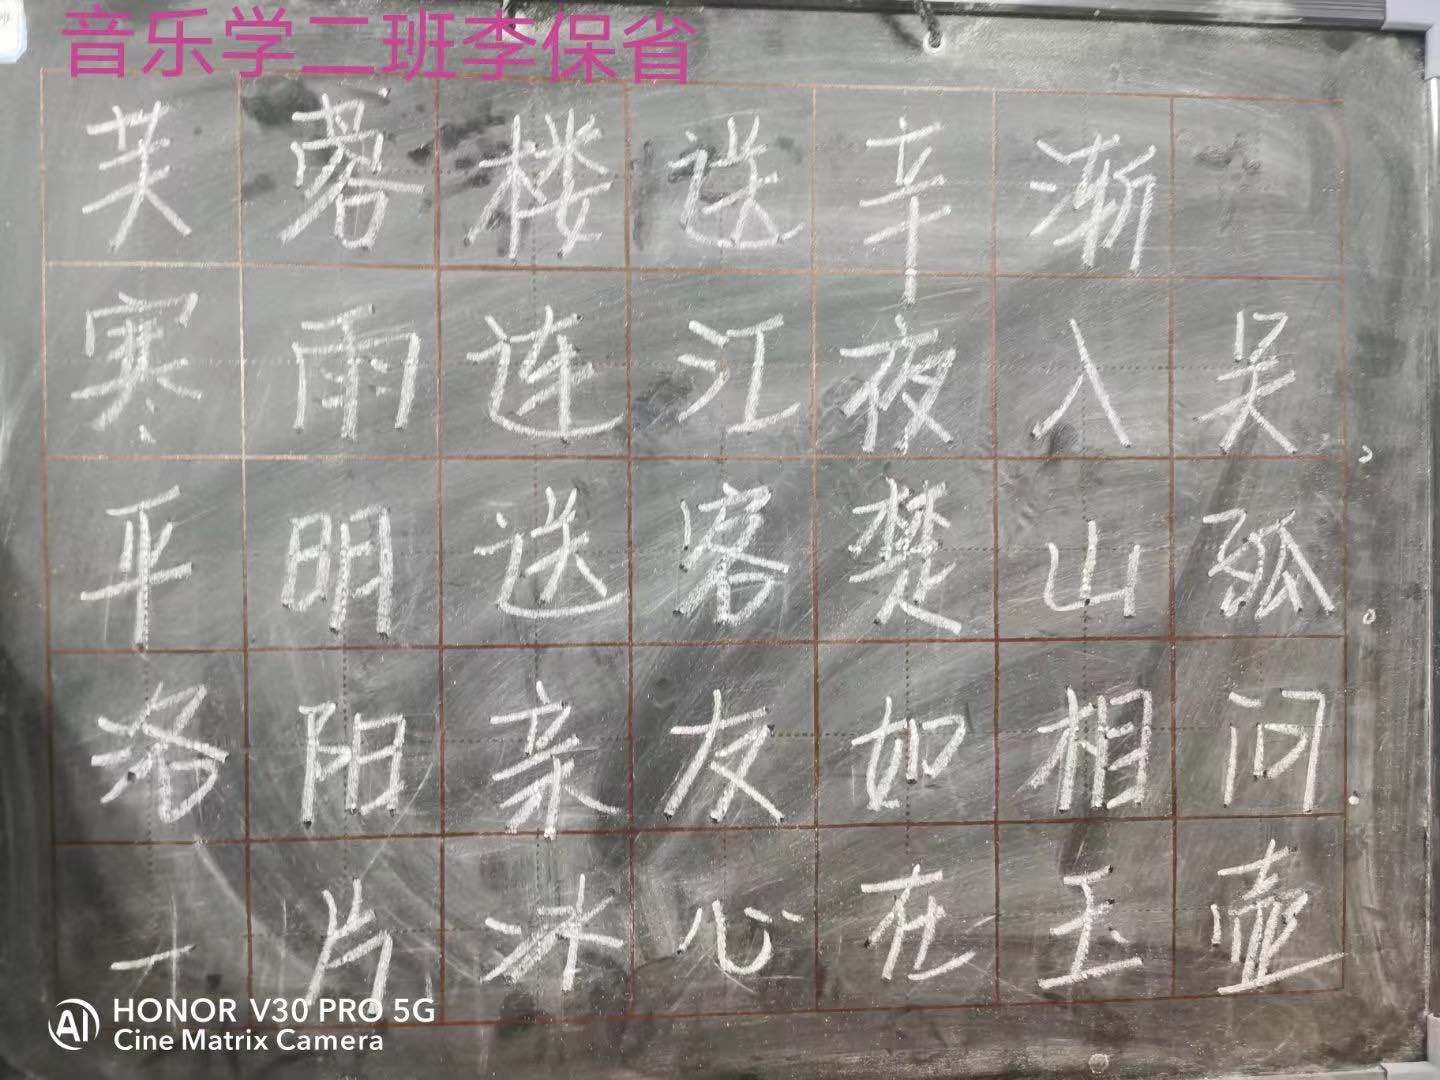 音乐学二班李保省
芙蓉楼送辛渐
寒雨连江夜入吴,
平明送客楚山孤。
洛阳亲友如相问
一片冰心在玉壶
AI HONOR V30 PRO 5G
Cine Matrix Camera